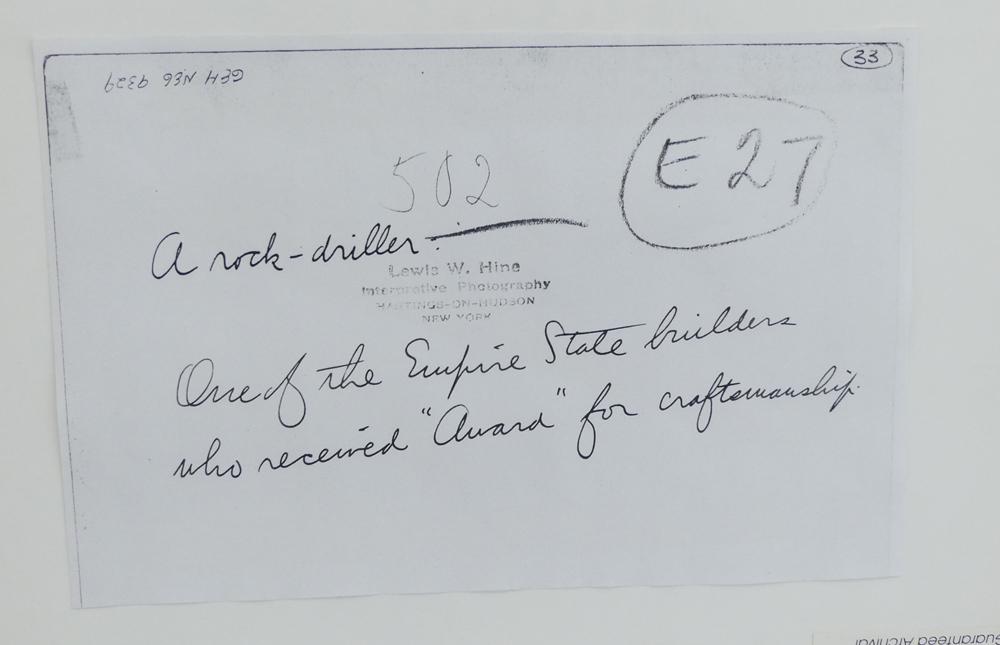 33
GEH NEG 9329
E 27
502
A rock-driller.
Lewis W. Hine
Interpretive Photography
HASTINGS-ON-HUDSON
NEW YORK
One of the Empire State builders
who received "Award" for craftsmanship.
Guaranteed Archival